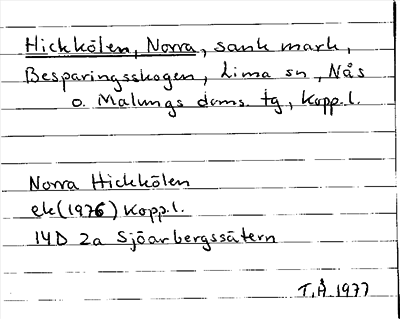 Hickkölen, Norra, sank mark,
Besparingsskogen, Lima sn, Nås
o. Malungs doms. tg, Kopp.l.
Norra Hickkölen
ek(1976) Kopp.l.
14D 2a Sjöarbergssätern
T.Å. 1977